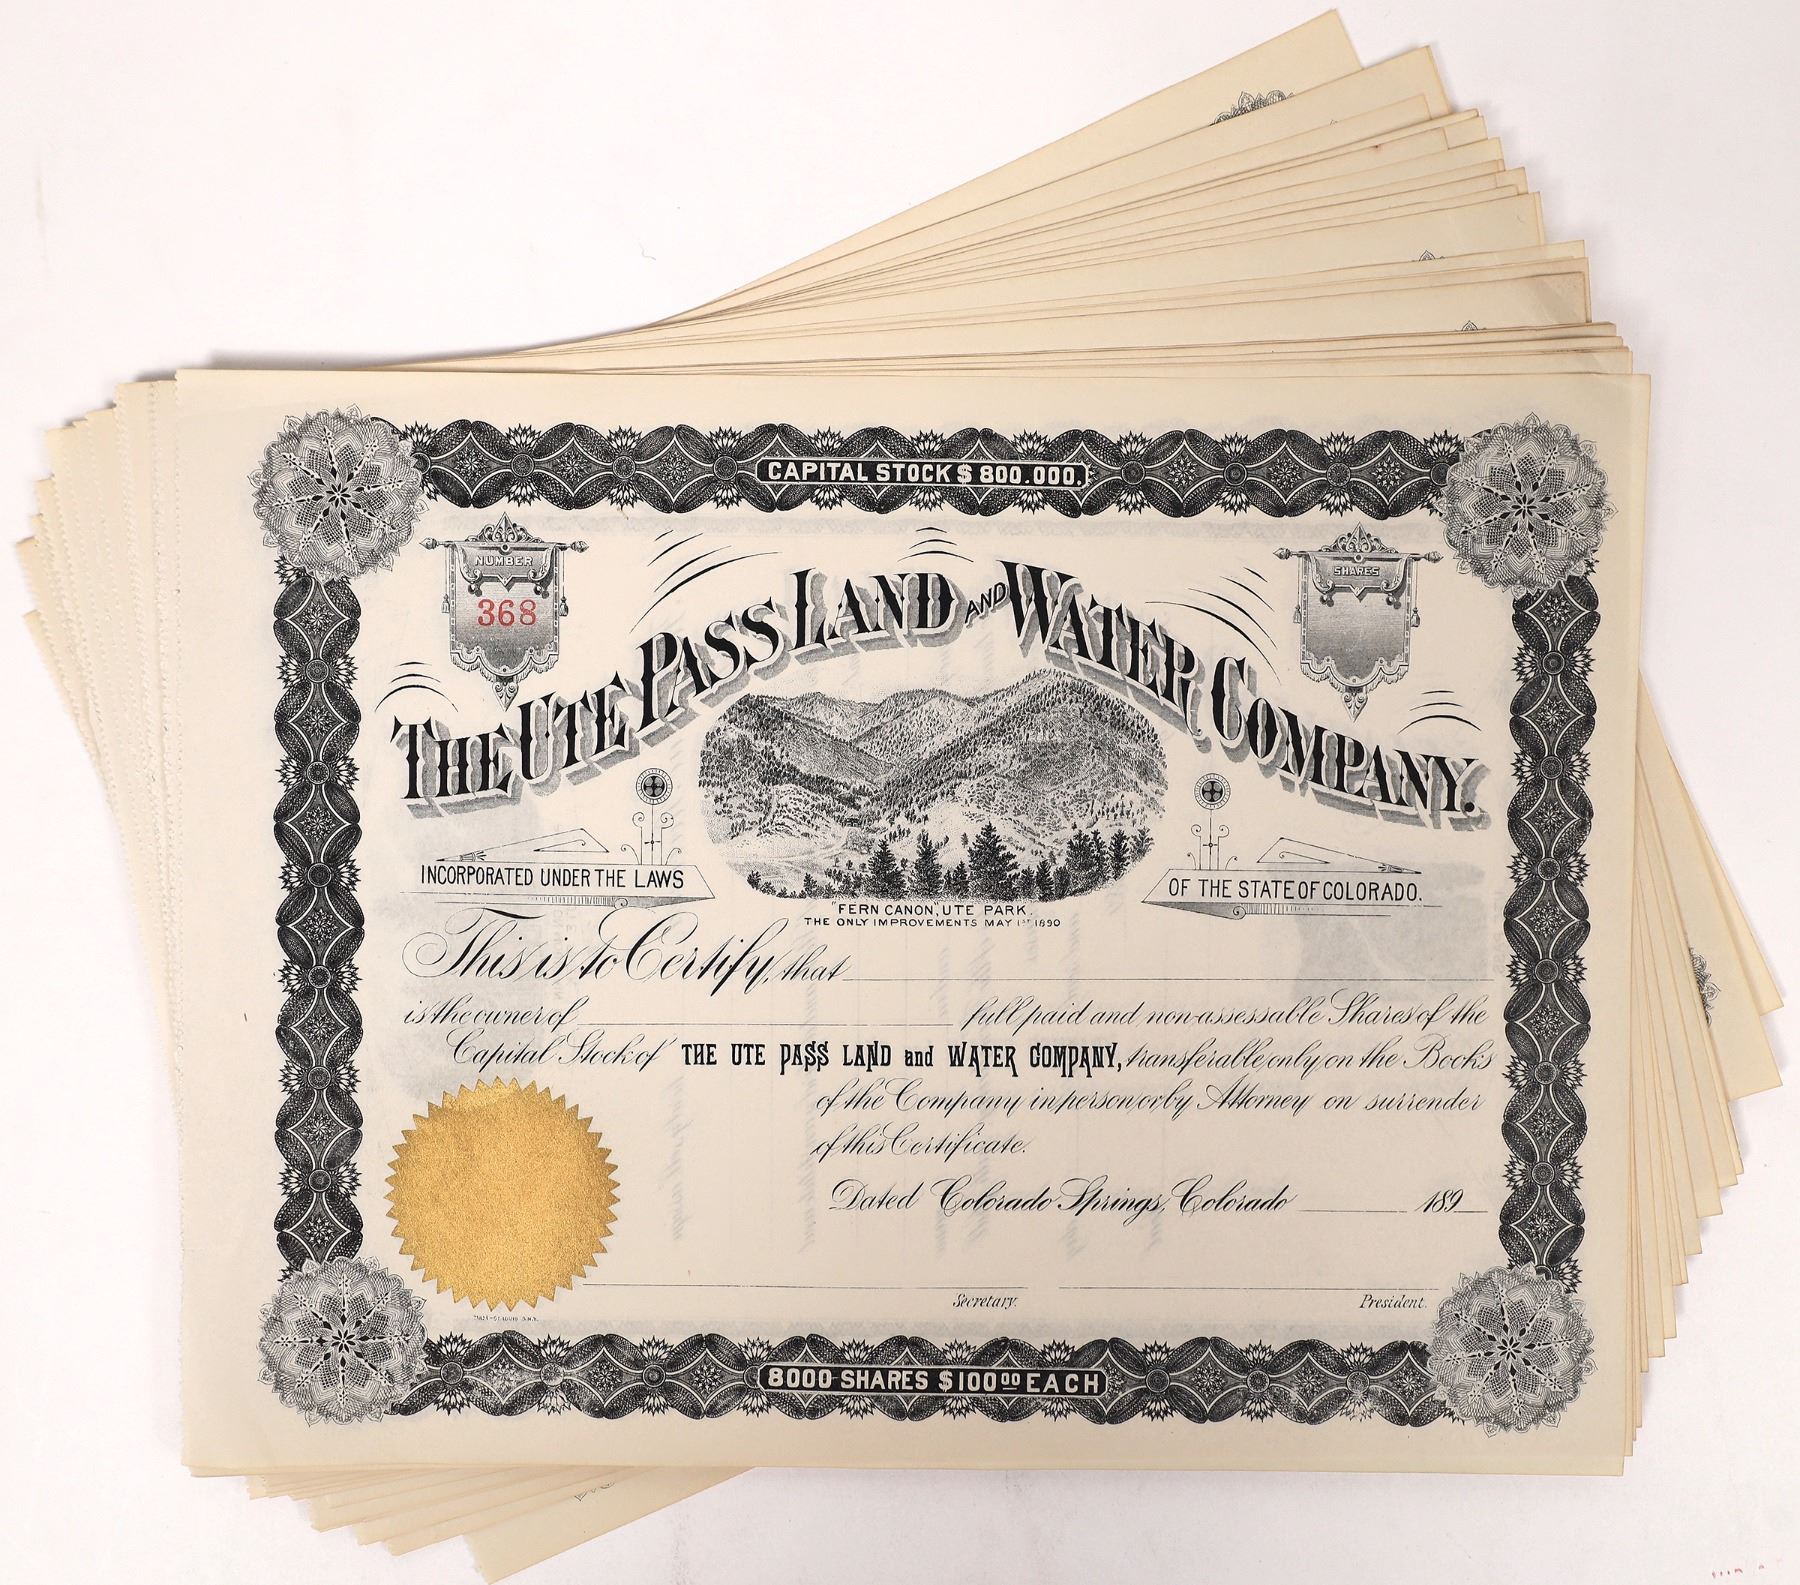 CAPITAL STOCK $ 800.000.
NUMBER
368
SHARES
THE UTE PASS LAND AND WATER COMPANY.
INCORPORATED UNDER THE LAWS
OF THE STATE OF COLORADO.
"FERN CANON", UTE PARK.
THE ONLY IMPROVEMENTS MAY 1ST 1890
This is to Certify, that
is the owner of full paid and non-assessable Shares of the
Capital Stock of THE UTE PASS LAND and WATER COMPANY, transferable only on the Books
of the Company in person or by Attorney on surrender
of this Certificate.
Dated Colorado Springs, Colorado 189
Secretary.
President.
8000 SHARES $100.00 EACH